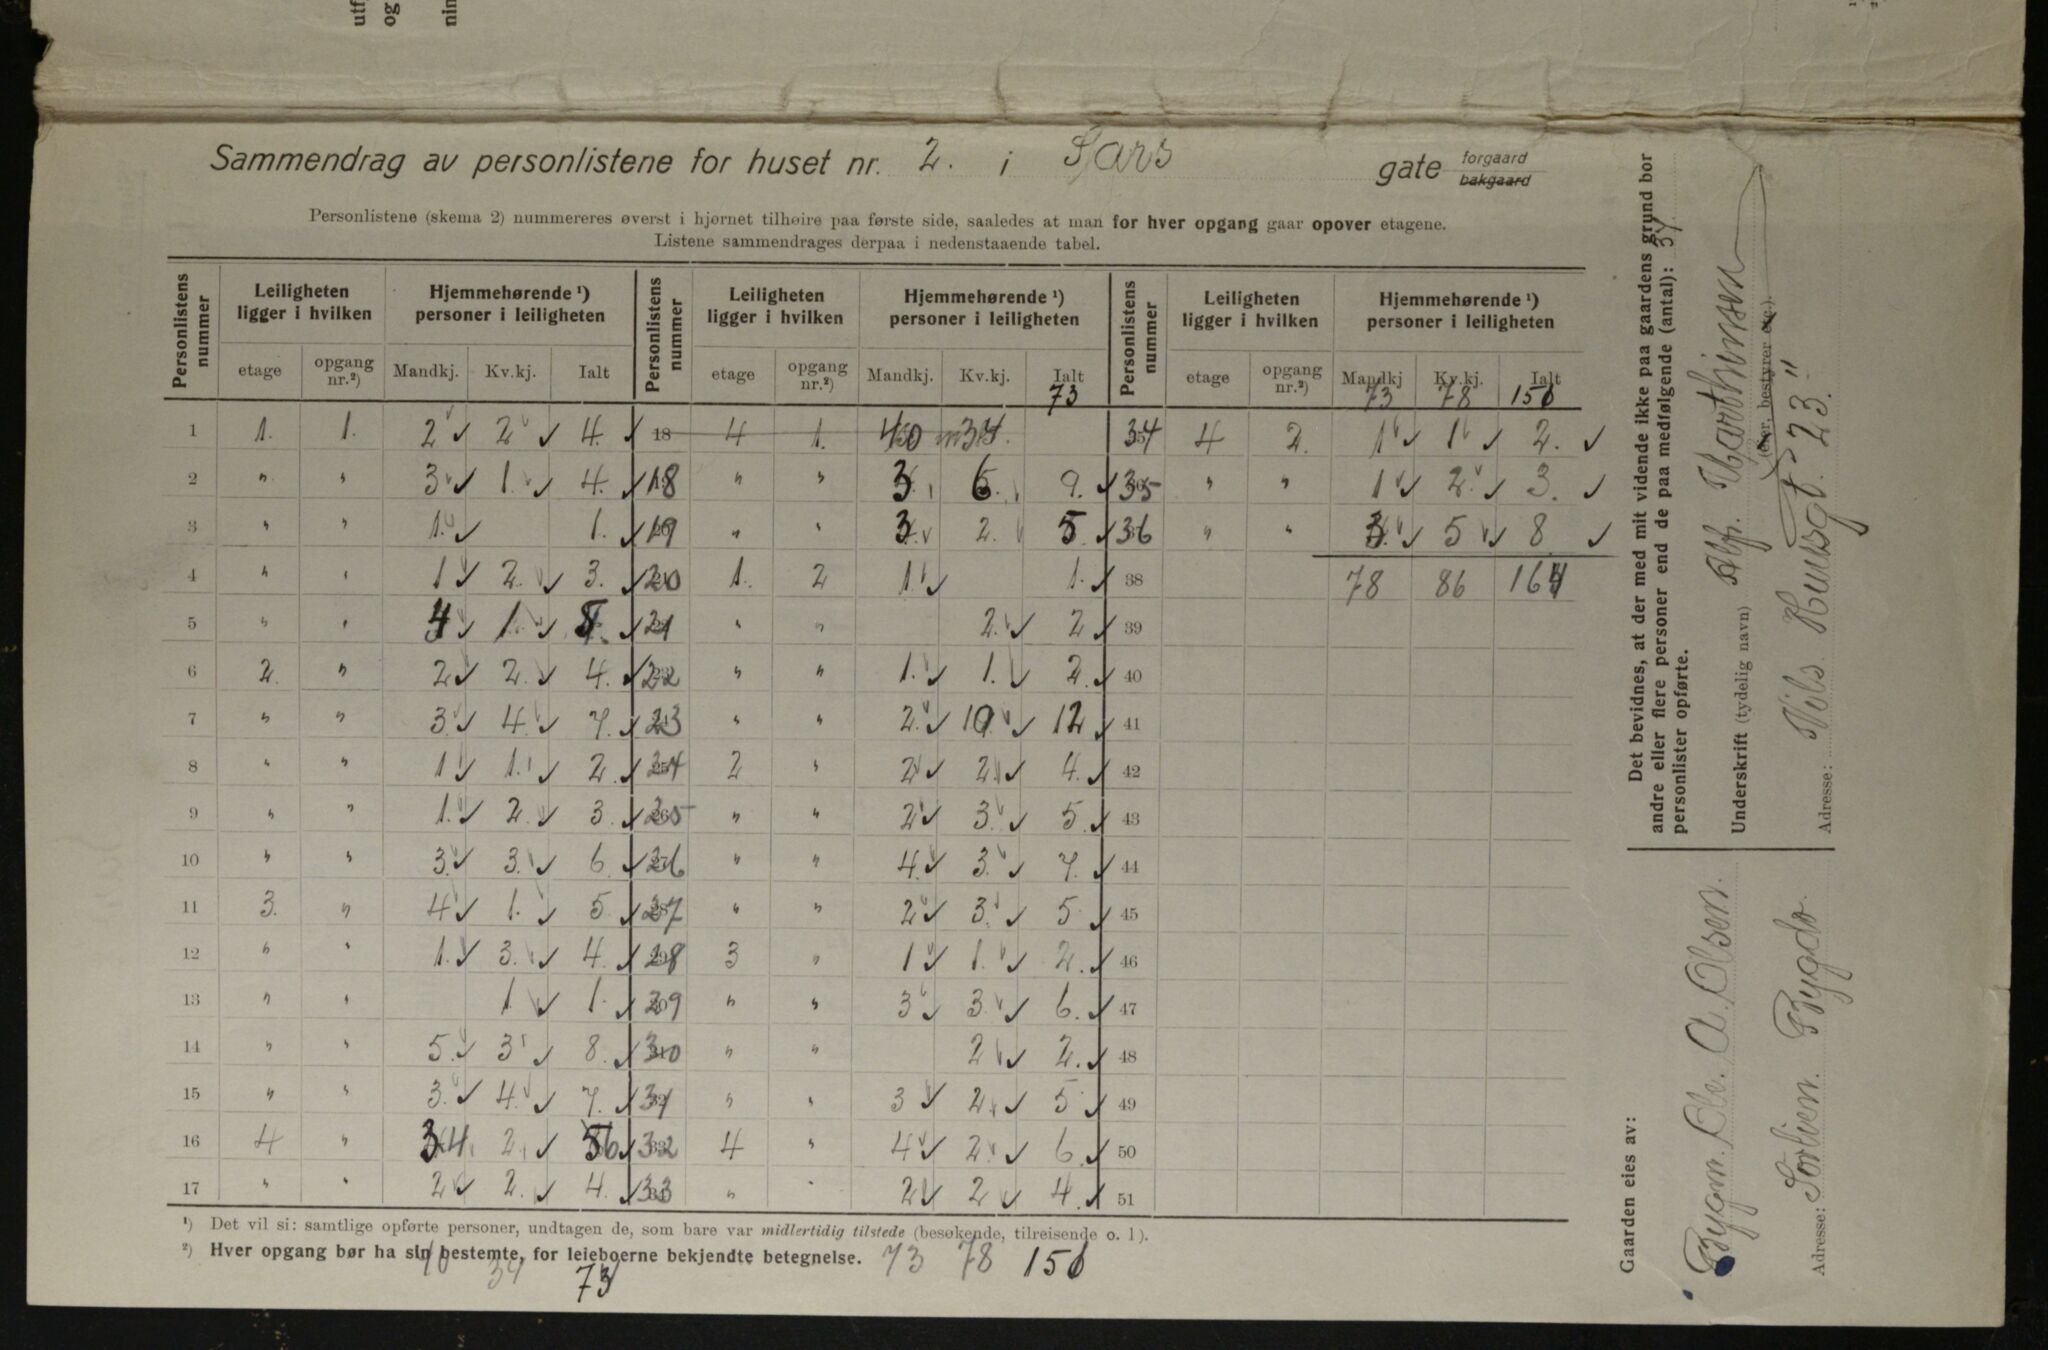 Sammendrag av personlistene for huset nr. 2. i Sars gate forgaard bakgaard
Personlistene (skema 2) nummereres øverst i hjørnet tilhøire paa første side, saaledes at man for hver opgang gaar opover etagene.
Listene sammendrages derpaa i nedenstaaende tabel.
Personlistens nummer | Leiligheten ligger i hvilken | Hjemmehørende ¹) personer i leiligheten | Personlistens nummer | Leiligheten ligger i hvilken | Hjemmehørende ¹) personer i leiligheten | Personlistens nummer | Leiligheten ligger i hvilken | Hjemmehørende ¹) personer i leiligheten
etage | opgang nr.²) | Mandkj. | Kv.kj. | Ialt | etage | opgang nr.²) | Mandkj. | Kv.kj. | Ialt | etage | opgang nr.²) | Mandkj | Kv.kj. | Ialt
73 | 73 | 78 | 151
1 | 1. | 1. | 2 | 2 | 4. | 18 | 4 | 1. | 40 | 34 | | 34 | 4 | 2. | 1 | 1 | 2.
2 | " | " | 3 | 1. | 4. | 18 | " | " | 3 | 6 | 9. | 35 | " | " | 1 | 2. | 3.
3 | " | " | 1. | | 1. | 19 | " | " | 3 | 2. | 5 | 36 | " | " | 3 | 5 | 8
4 | " | " | 1 | 2. | 3. | 20 | 1. | 2 | 1. | | 1. | 38 | | | 78 | 86 | 164
5 | " | " | 4 | 1. | 5 | 21 | " | " | | 2. | 2 | 39
6 | 2. | " | 2 | 2. | 4. | 22 | " | " | 1. | 1. | 2. | 40
7 | " | " | 3 | 4. | 7. | 23 | " | " | 2. | 10 | 12 | 41
8 | " | " | 1 | 1. | 2. | 24 | 2 | " | 2 | 2. | 4. | 42
9 | " | " | 1. | 2. | 3. | 25 | " | " | 2 | 3. | 5. | 43
10 | " | " | 3. | 3. | 6. | 26 | " | " | 4. | 3. | 7. | 44
11 | 3. | " | 4 | 1. | 5 | 27 | " | " | 2 | 3. | 5. | 45
12 | " | " | 1. | 3. | 4. | 28 | 3 | " | 1 | 1. | 2. | 46
13 | " | " | | 1 | 1. | 29 | " | " | 3 | 3. | 6. | 47
14 | " | " | 5. | 3 | 8. | 30 | " | " | | 2 | 2. | 48
15 | " | " | 3. | 4. | 7. | 31 | " | " | 3 | 2. | 5. | 49
16 | 4 | " | 34 | 2. | 56 | 32 | 4 | " | 4 | 2. | 6. | 50
17 | " | " | 2 | 2. | 4. | 33 | " | " | 2 | 2 | 4. | 51
¹) Det vil si: samtlige opførte personer, undtagen de, som bare var midlertidig tilstede (besøkende, tilreisende o. l).
²) Hver opgang bør ha sin bestemte, for leieboerne bekjendte betegnelse. 73 78 151
40 34 73
Det bevidnes, at der med mit vidende ikke paa gaardens grund bor
andre eller flere personer end de paa medfølgende (antal): 37
personlister opførte.
Underskrift (tydelig navn) Alf. Marthinsen
(eier, bestyrer etc.).
Adresse: Nils Huusgt. 23."
Gaarden eies av:
Bygm. Ole. A. Olsen.
Adresse: Sollien. Bygdø.